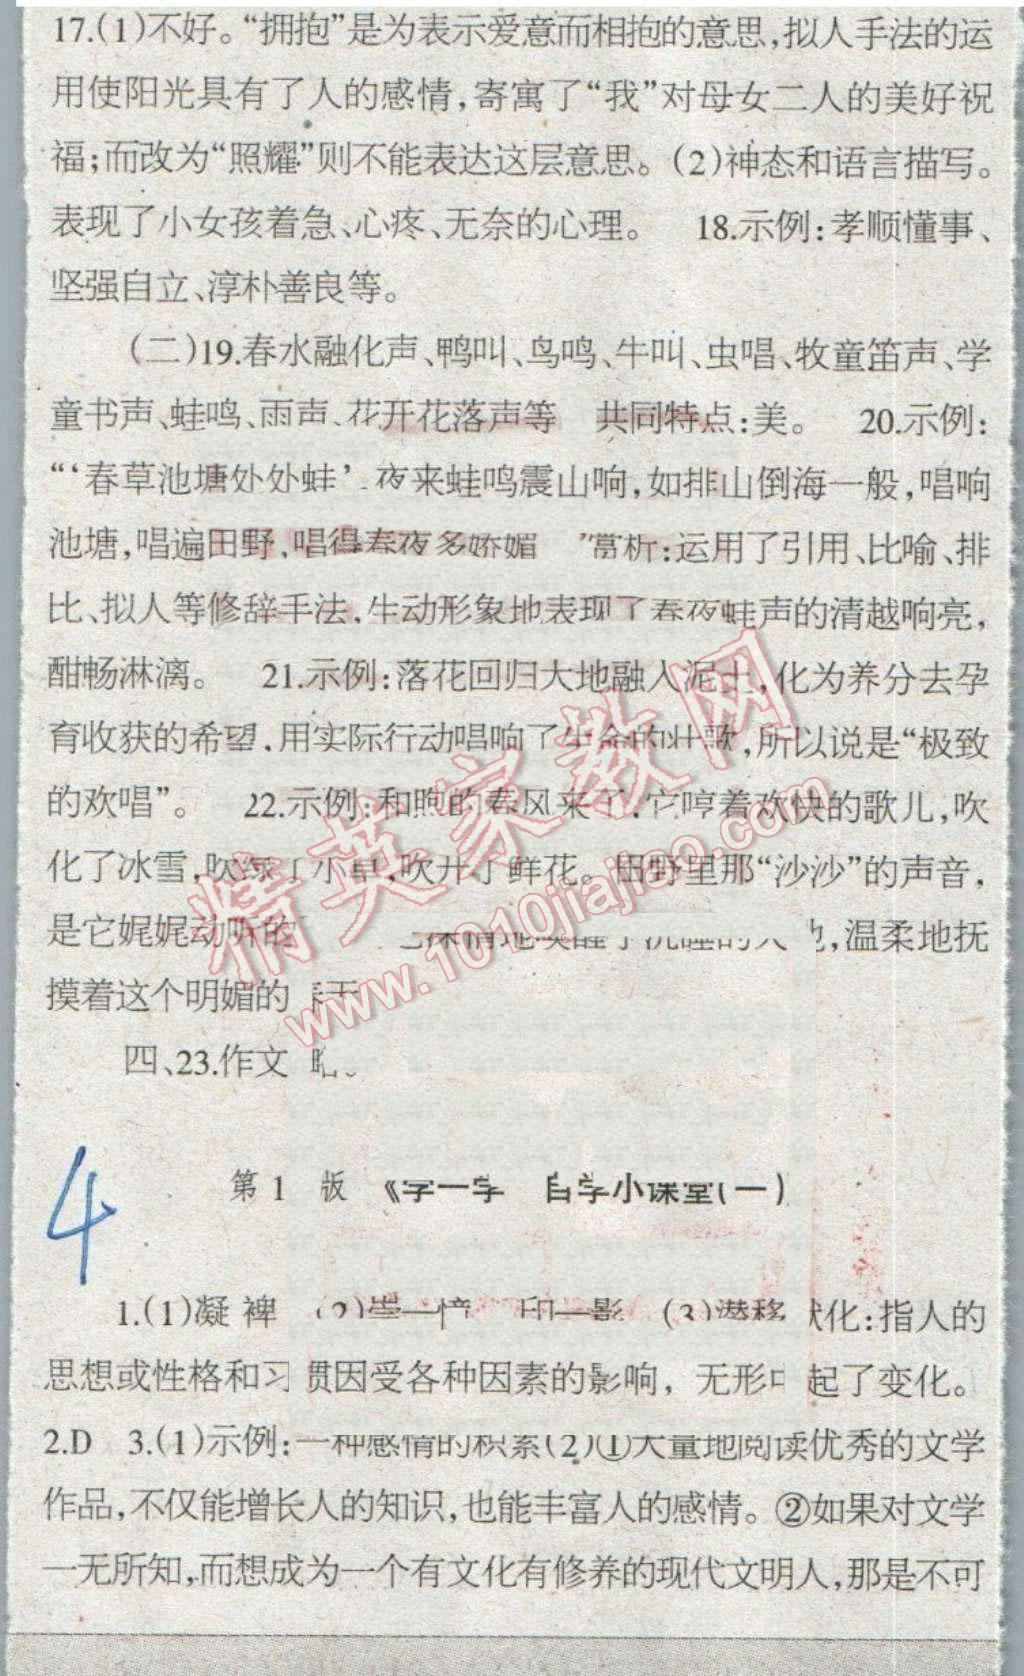 17.(1)不好。“拥抱”是为表示爱意而相抱的意思,拟人手法的运
用使阳光具有了人的感情,寄寓了“我”对母女二人的美好祝
福;而改为“照耀”则不能表达这层意思。(2)神态和语言描写。
表现了小女孩着急、心疼、无奈的心理。 18.示例:孝顺懂事、
坚强自立、淳朴善良等。
(二)19.春水融化声、鸭叫、鸟鸣、牛叫、虫唱、牧童笛声、学
童书声、蛙鸣、雨声、花开花落声等 共同特点:美。 20.示例:
“‘春草池塘处处蛙’,夜来蛙鸣震山响,如排山倒海一般,唱响
池塘,唱遍田野,唱得春夜多娇媚 ”赏析:运用了引用、比喻、排
比、拟人等修辞手法,生动形象地表现了春夜蛙声的清越响亮,
酣畅淋漓。 21.示例:落花回归大地融入泥土,化为养分去孕
育收获的希望,用实际行动唱响了生命的壮歌,所以说是“极致
的欢唱”。 22.示例:和煦的春风来了,它哼着欢快的歌儿,吹
化了冰雪,吹绿了小草,吹开了鲜花。田野里那“沙沙”的声音,
是它娓娓动听的 深情地唤醒了沉睡的大地,温柔地抚
摸着这个明媚的春天
四、23.作文略。
4
第1 版 《学一学 自学小课堂(一)
1.(1)凝 裨 (2)崇—憧 印—影 (3)潜移默化:指人的
思想或性格和习惯因受各种因素的影响,无形中起了变化。
2.D 3.(1)示例:一种感情的积累(2)①大量地阅读优秀的文学
作品,不仅能增长人的知识,也能丰富人的感情。②如果对文学
一无所知,而想成为一个有文化有修养的现代文明人,那是不可
精英家教网
www.1010jiajiao.com